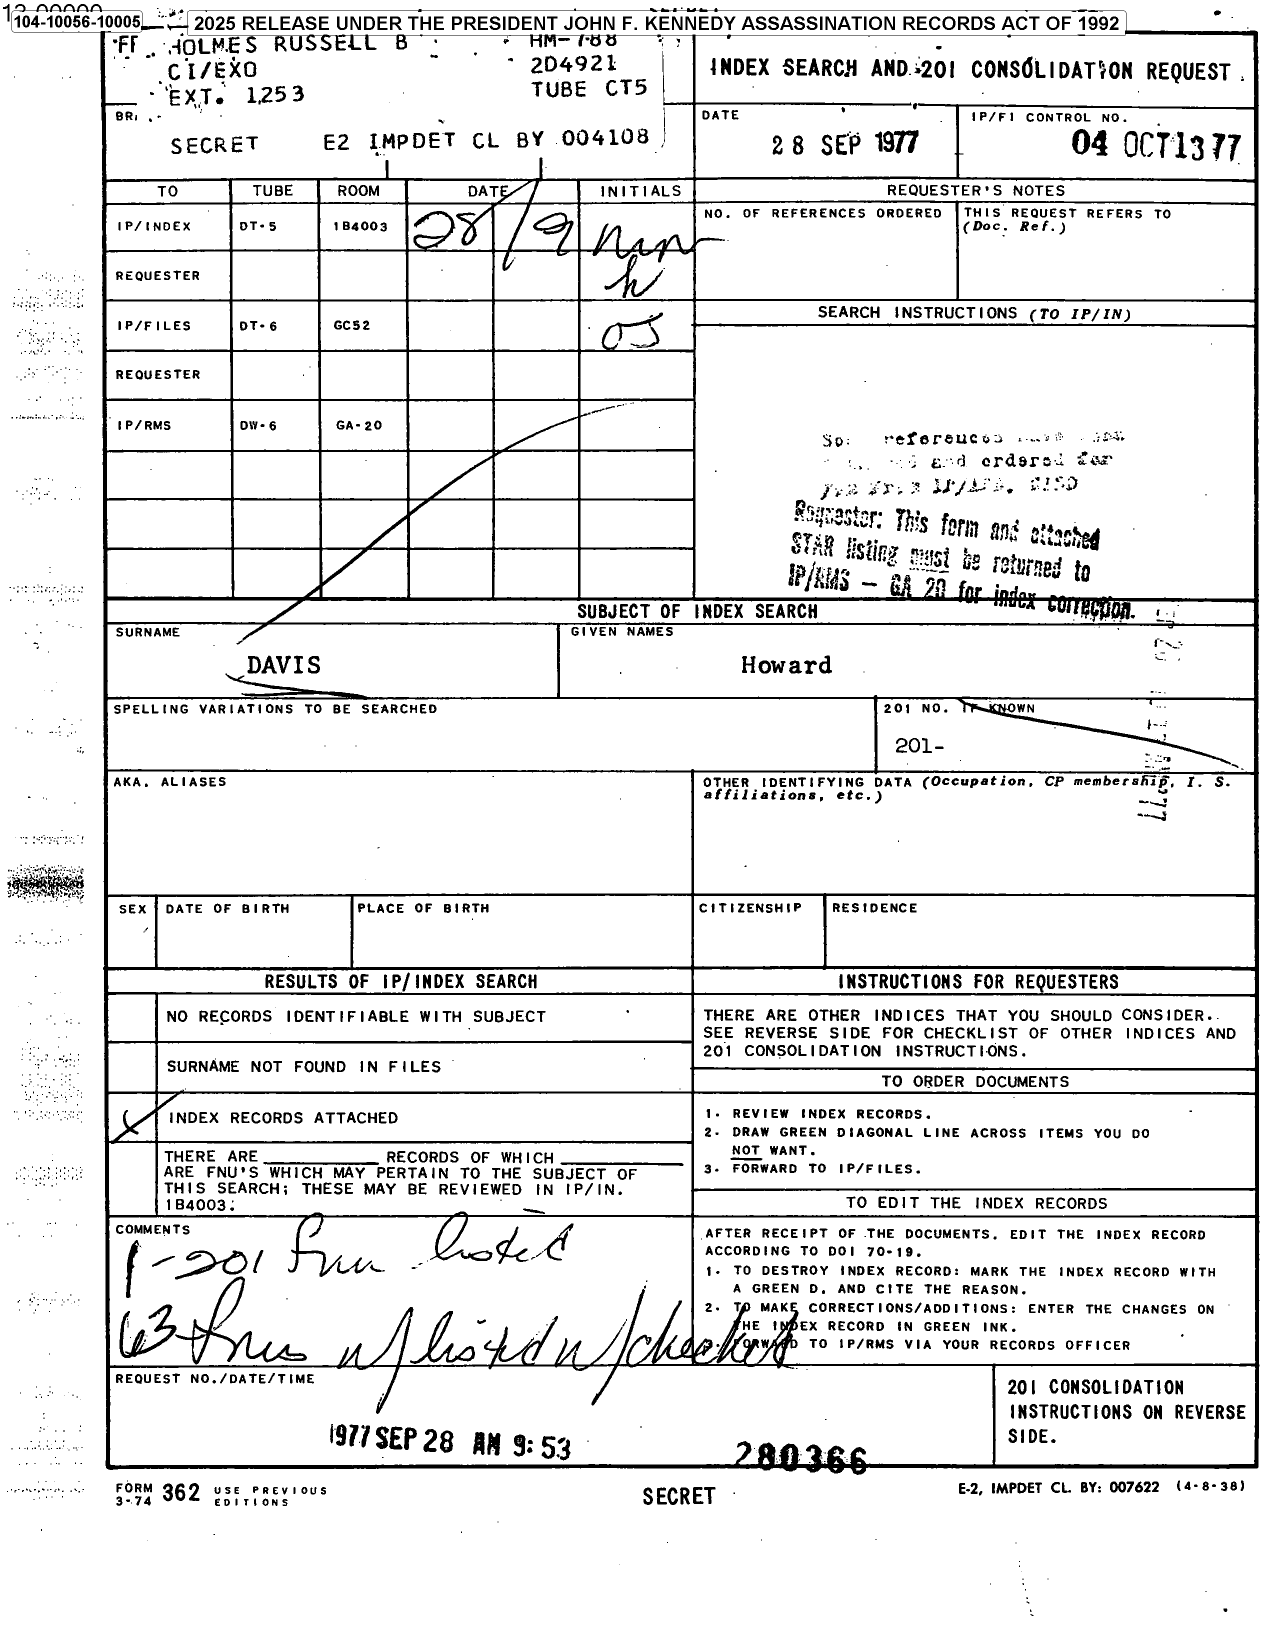 13-00000
104-10056-10005
2025 RELEASE UNDER THE PRESIDENT JOHN F. KENNEDY ASSASSINATION RECORDS ACT OF 1992
HOLMES RUSSELL B HM-788
CI/EXO 2D4921
EXT. 1253 TUBE CT5
SECRET E2 IMPDET CL BY 004108
INDEX SEARCH AND 201 CONSOLIDATION REQUEST
DATE
28 SEP 1977
IP/FI CONTROL NO.
04 OCT 1377
TO TUBE ROOM DATE INITIALS
IP/INDEX DT-5 1B4003 28/9
REQUESTER
IP/FILES DT-6 GC52 OJ
REQUESTER
IP/RMS DW-6 GA-20
REQUESTER'S NOTES
NO. OF REFERENCES ORDERED
THIS REQUEST REFERS TO
(Doc. Ref.)
SEARCH INSTRUCTIONS (TO IP/IN)
references
and ordered for
Requester: This form and attached
STAR listing must be returned to
IP/RMS - GA 20 for index correction.
SUBJECT OF INDEX SEARCH
SURNAME
DAVIS
GIVEN NAMES
Howard
SPELLING VARIATIONS TO BE SEARCHED
201 NO. IF KNOWN
201-
AKA. ALIASES
OTHER IDENTIFYING DATA (Occupation, CP membership, I. S.
affiliations, etc.)
SEX DATE OF BIRTH PLACE OF BIRTH CITIZENSHIP RESIDENCE
RESULTS OF IP/INDEX SEARCH
NO RECORDS IDENTIFIABLE WITH SUBJECT
SURNAME NOT FOUND IN FILES
X INDEX RECORDS ATTACHED
THERE ARE RECORDS OF WHICH
ARE FNU'S WHICH MAY PERTAIN TO THE SUBJECT OF
THIS SEARCH; THESE MAY BE REVIEWED IN IP/IN.
1B4003.
COMMENTS
1-201 Fnu listed
63 Fnus w/listed w/checked
INSTRUCTIONS FOR REQUESTERS
THERE ARE OTHER INDICES THAT YOU SHOULD CONSIDER.
SEE REVERSE SIDE FOR CHECKLIST OF OTHER INDICES AND
201 CONSOLIDATION INSTRUCTIONS.
TO ORDER DOCUMENTS
1. REVIEW INDEX RECORDS.
2. DRAW GREEN DIAGONAL LINE ACROSS ITEMS YOU DO
NOT WANT.
3. FORWARD TO IP/FILES.
TO EDIT THE INDEX RECORDS
AFTER RECEIPT OF THE DOCUMENTS. EDIT THE INDEX RECORD
ACCORDING TO DOI 70-19.
1. TO DESTROY INDEX RECORD: MARK THE INDEX RECORD WITH
A GREEN D. AND CITE THE REASON.
2. TO MAKE CORRECTIONS/ADDITIONS: ENTER THE CHANGES ON
THE INDEX RECORD IN GREEN INK.
3. FORWARD TO IP/RMS VIA YOUR RECORDS OFFICER
REQUEST NO./DATE/TIME
1977 SEP 28 AM 9:53
280366
201 CONSOLIDATION
INSTRUCTIONS ON REVERSE
SIDE.
FORM 3-74 362 USE PREVIOUS EDITIONS
SECRET
E-2, IMPDET CL. BY: 007622 (4-8-38)